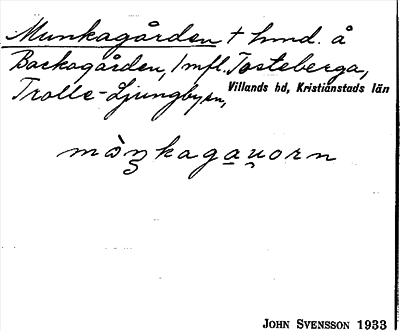 Munkagården † hmd. å
Backagården, 1 mfl. Tosteberga,
Trolle-Ljungby sn, Villands hd, Kristianstads län
JOHN SVENSSON 1933